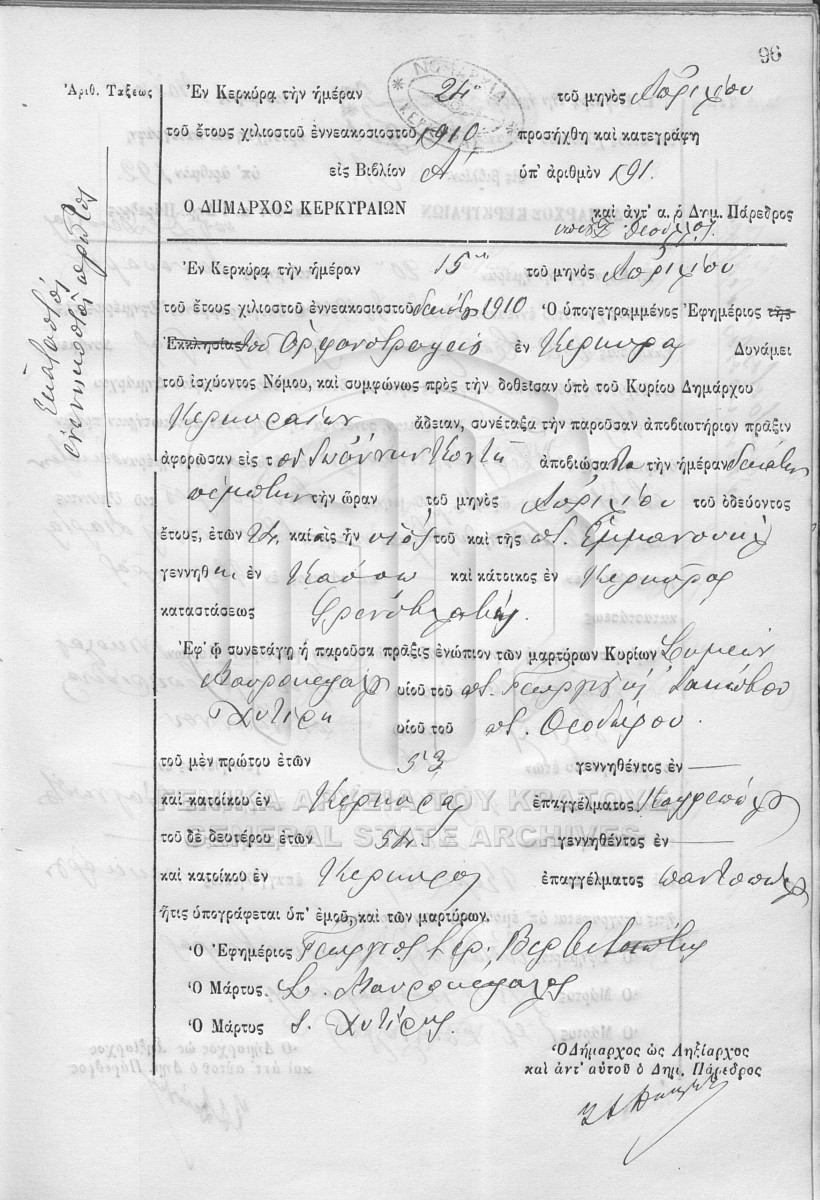 96
Ἀριθ. Τάξεως
Ἑκατοστὸς ἐνενηκοστὸς πρῶτος
Ἐν Κερκύρᾳ τὴν ἡμέραν 24ην τοῦ μηνὸς Ἀπριλίου
τοῦ ἔτους χιλιοστοῦ ἐννεακοσιοστοῦ 1910 προσήχθη καὶ κατεγράφη
εἰς Βιβλίον Α΄ ὑπ' ἀριθμὸν 191.
Ο ΔΗΜΑΡΧΟΣ ΚΕΡΚΥΡΑΙΩΝ καὶ ἀντ' α. ὁ Δημ. Πάρεδρος
ΝΟΜΑΡΧΙΑ ΚΕΡΚΥΡΑΣ
Ἐν Κερκύρᾳ τὴν ἡμέραν 15ην τοῦ μηνὸς Ἀπριλίου
τοῦ ἔτους χιλιοστοῦ ἐννεακοσιοστοῦ δεκάτου 1910 Ὁ ὑπογεγραμμένος Ἐφημέριος τῆς
Ἐκκλησίας τοῦ Ὀρφανοτροφείου ἐν Κερκύρᾳ Δυνάμει
τοῦ ἰσχύοντος Νόμου, καὶ συμφώνως πρὸς τὴν δοθεῖσαν ὑπὸ τοῦ Κυρίου Δημάρχου
Κερκυραίων ἄδειαν, συνέταξα τὴν παροῦσαν ἀποβιωτήριον πρᾶξιν
ἀφορῶσαν εἰς τὸν Ἰωάννην Κοντῆ ἀποβιώσαντα τὴν ἡμέραν δεκάτην
πέμπτην τὴν ὥραν τοῦ μηνὸς Ἀπριλίου τοῦ ὁδεύοντος
ἔτους, ἐτῶν 74, καὶ εἰς ἣν υἱὸς τοῦ καὶ τῆς ποτ. Ἐμμανουὴλ
γεννηθεὶς ἐν Κάσσῳ καὶ κάτοικος ἐν Κερκύρᾳ
καταστάσεως Φρενοβλαβής.
Ἐφ' ᾧ συνετάγη ἡ παροῦσα πρᾶξις ἐνώπιον τῶν μαρτύρων Κυρίων Συμεὼν
Μαυροκέφαλος υἱοῦ τοῦ ποτ. Γεωργίου, Ἰακώβου
Χυτίρη υἱοῦ τοῦ ποτ. Θεοδώρου.
τοῦ μὲν πρώτου ἐτῶν 53 γεννηθέντος ἐν —
καὶ κατοίκου ἐν Κερκύρᾳ ἐπαγγέλματος Καφφεπώλου
τοῦ δὲ δευτέρου ἐτῶν 54 γεννηθέντος ἐν —
καὶ κατοίκου ἐν Κερκύρᾳ ἐπαγγέλματος παντοπώλου
ἥτις ὑπογράφεται ὑπ' ἐμοῦ, καὶ τῶν μαρτύρων.
Ὁ Ἐφημέριος Γεώργιος Ἱερ.
Ὁ Μάρτυς. Σ. Μαυροκέφαλος
Ὁ Μάρτυς Ι. Χυτίρης.
Ὁ Δήμαρχος ὡς Ληξίαρχος
καὶ ἀντ' αὐτοῦ ὁ Δημ. Πάρεδρος
ΓΕΝΙΚΑ ΑΡΧΕΙΑ ΤΟΥ ΚΡΑΤΟΥΣ
GENERAL STATE ARCHIVES